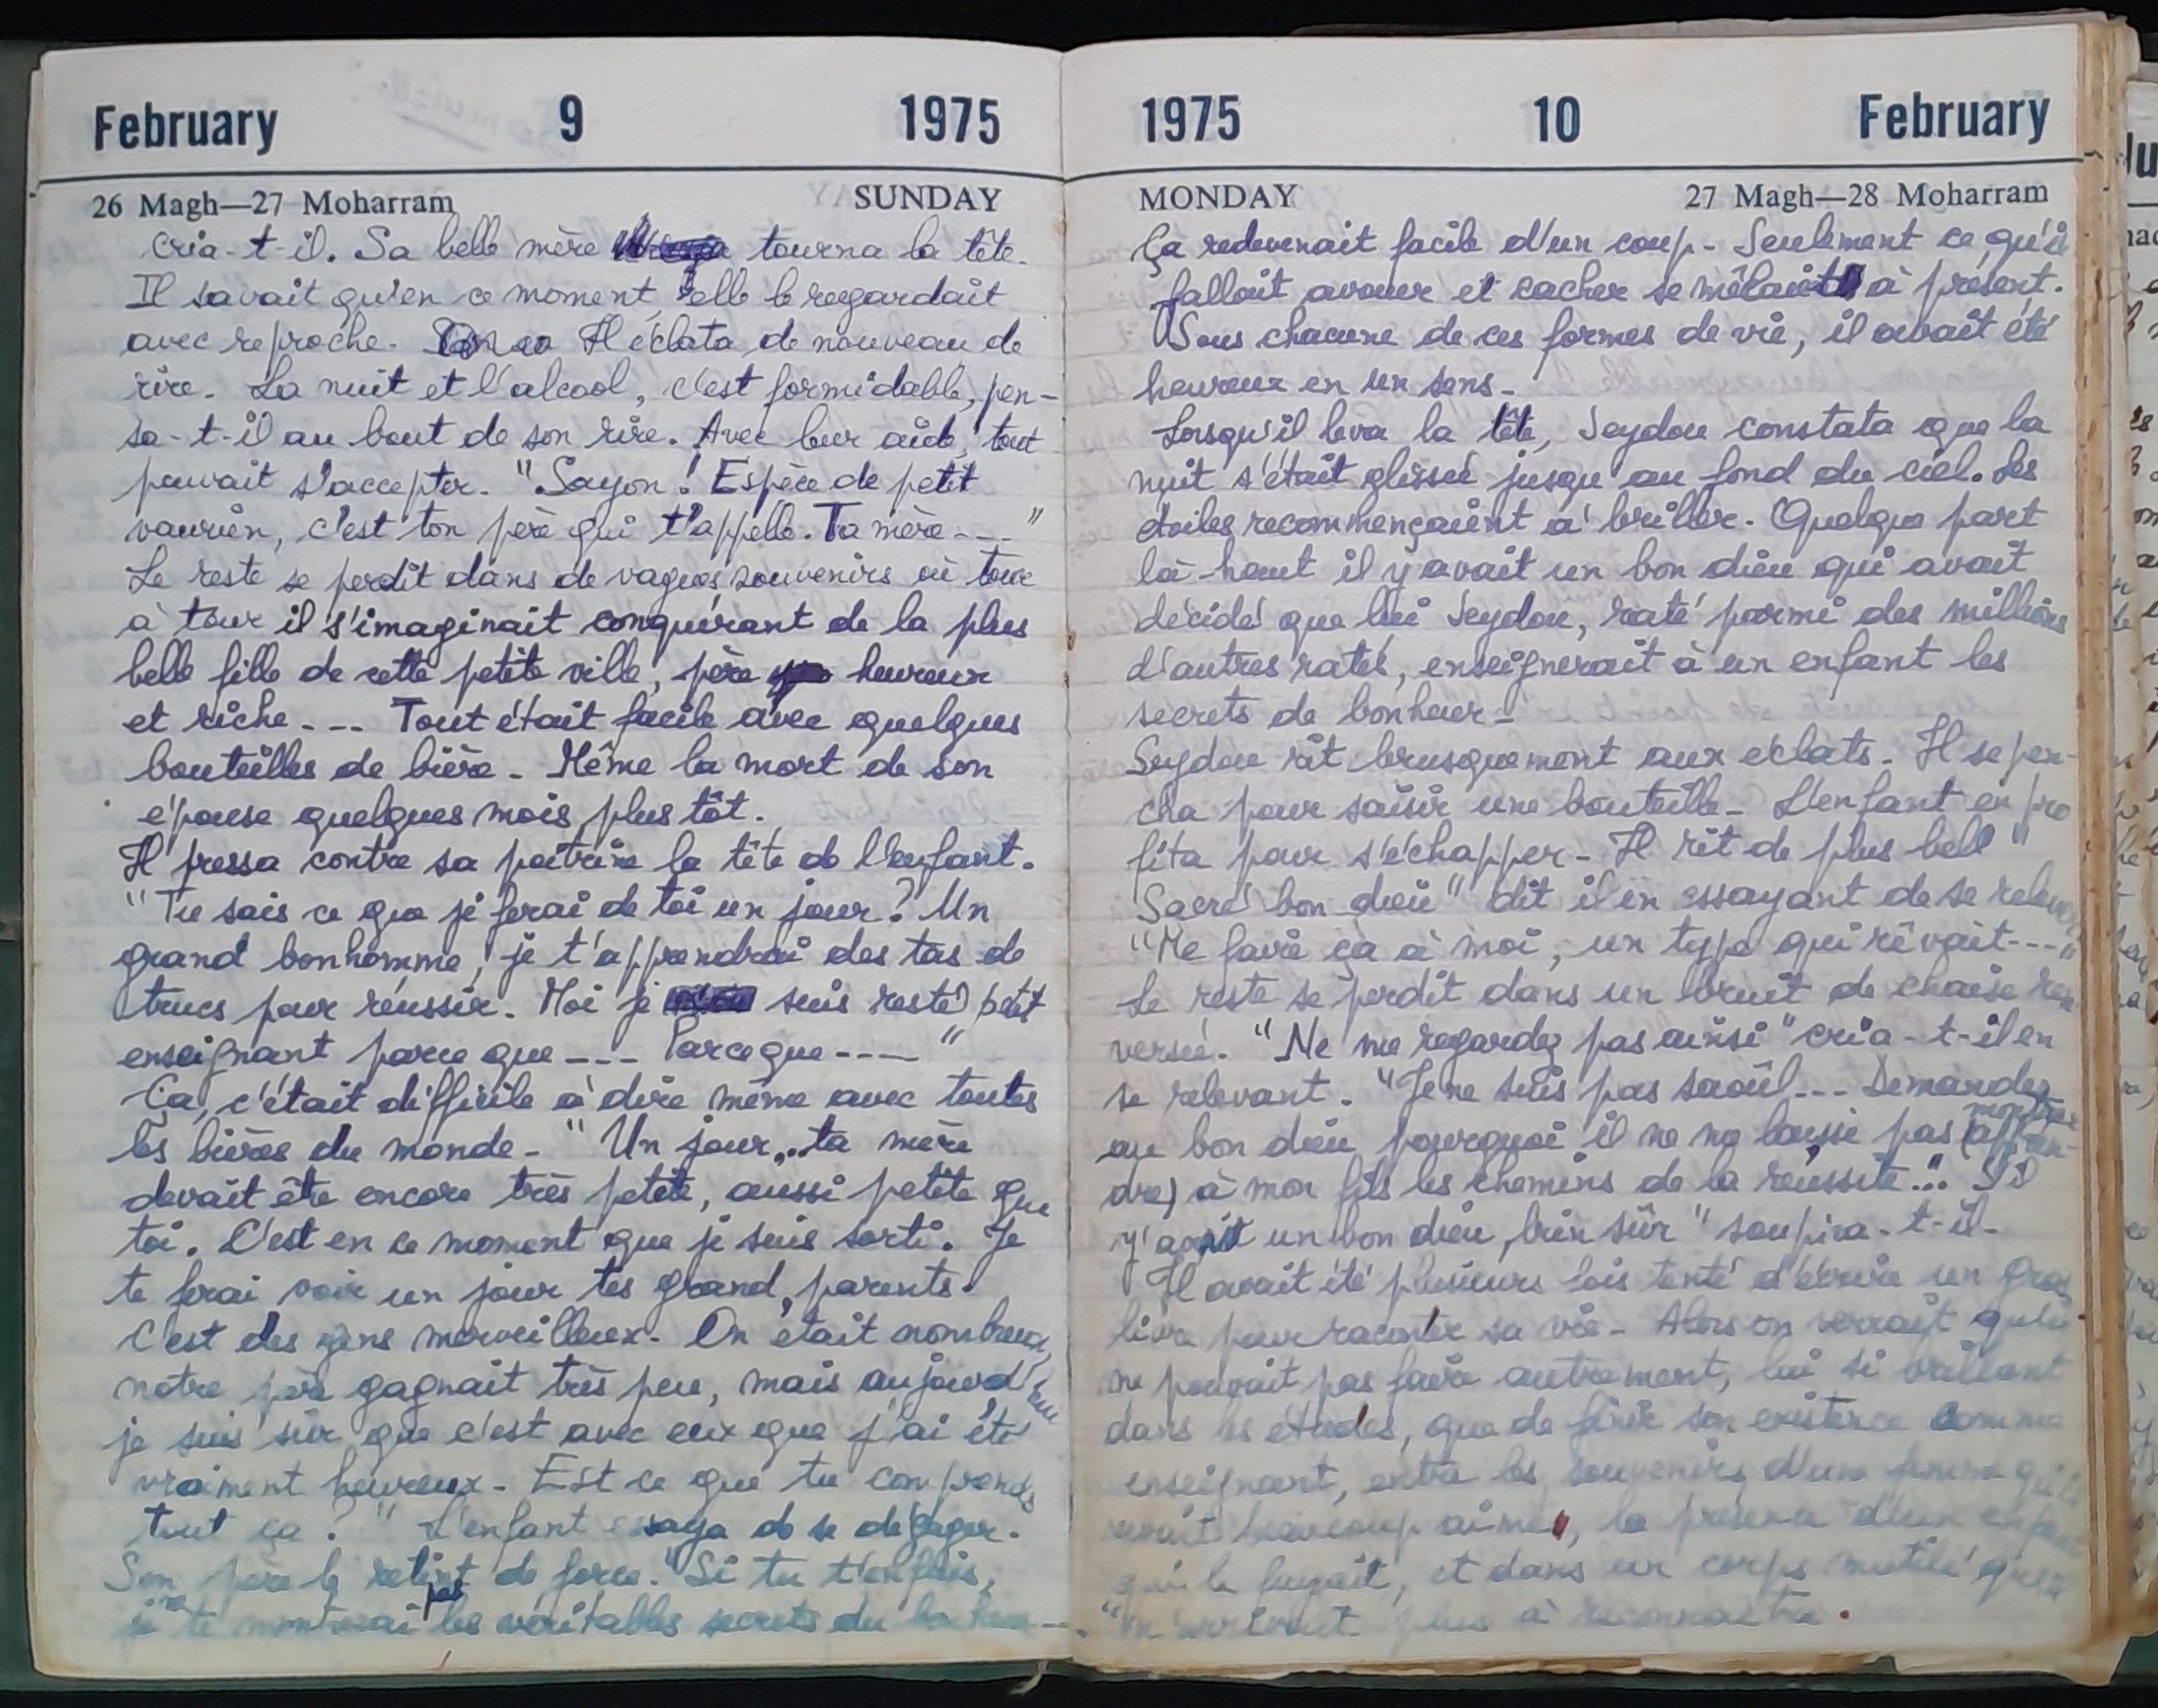 February 9 1975
26 Magh—27 Moharram SUNDAY
cria-t-il. Sa belle mère tourna la tête.
Il savait qu'en ce moment, elle le regardait
avec reproche. Il éclata de nouveau de
rire. La nuit et l'alcool, c'est formidable, pen-
sa-t-il au bout de son rire. Avec leur aide, tout
pouvait s'accepter. "Sayon! Espèce de petit
vaurien, c'est ton père qui t'appelle. Ta mère---"
Le reste se perdit dans de vagues souvenirs où tour
à tour il s'imaginait conquérant de la plus
belle fille de cette petite ville, père heureux
et riche--- Tout était facile avec quelques
bouteilles de bière - Même la mort de son
épouse quelques mois plus tôt.
Il pressa contre sa poitrine la tête de l'enfant.
"Tu sais ce que je ferai de toi un jour? Un
grand bonhomme, je t'apprendrai des tas de
trucs pour réussir. Moi je suis resté petit
enseignant parce que --- Parceque ----"
Ça, c'était difficile à dire même avec toutes
les bières du monde - "Un jour... ta mère
devait être encore très petite, aussi petite que
toi. C'est en ce moment que je suis sorti. Je
te ferai voir un jour tes grand, parents.
C'est des gens merveilleux. On était nombreux,
notre père gagnait très peu, mais aujourd'hui
je suis sûr que c'est avec eux que j'ai été
vraiment heureux - Est ce que tu comprends
tout ça?" L'enfant essaya de se dégager.
Son père le retint de force. "Si tu t'enfuis,
je ne te montrerai pas les véritables secrets du bonheur---
1975 10 February
MONDAY 27 Magh—28 Moharram
Ça redevenait facile d'un coup - Seulement ce, qu'il
fallait avouer et cacher se mêlait à présent.
Sous chacune de ces formes de vie, il avait été
heureux en un sens -
Lorsqu'il leva la tête, Seydou constata que la
nuit s'était glissée jusqu'au fond du ciel. Les
étoiles recommençaient à briller. Quelque part
là-haut il y avait un bon dieu qui avait
décidé que lui Seydou, raté parmi des millions
d'autres ratés, enseignerait à un enfant les
secrets de bonheur -
Seydou rit brusquement aux éclats - Il se pen-
cha pour saisir une bouteille - L'enfant en pro
fita pour s'échapper - Il rit de plus bell "
Sacré bon dieu" dit il en essayant de se relever
"Me faire ça à moi, un type qui rêvait---"
Le reste se perdit dans un bruit de chaise ren
versée. "Ne me regardez pas ainsi" cria-t-il en
se relevant. "Je ne suis pas saoûl--- Demandez
au bon dieu pourquoi il ne me laisse pas montrer (appren-
dre) à mon fils les chemins de la réussite..." S'il
y'avait un bon dieu, bien sûr" soupira-t-il -
Il avait été plusieurs fois tenté d'écrire un gros
livre pour raconter sa vie - Alors on verrait qu'il
ne pouvait pas faire autrement, lui si brillant
dans les études, que de finir son existence comme
enseignant, entre les souvenirs d'une femme qu'il
avait beaucoup aimé, la présence d'un enfant
qui le fuyait, et dans un corps mutilé qu'il
n'arrivait plus à reconnaître.